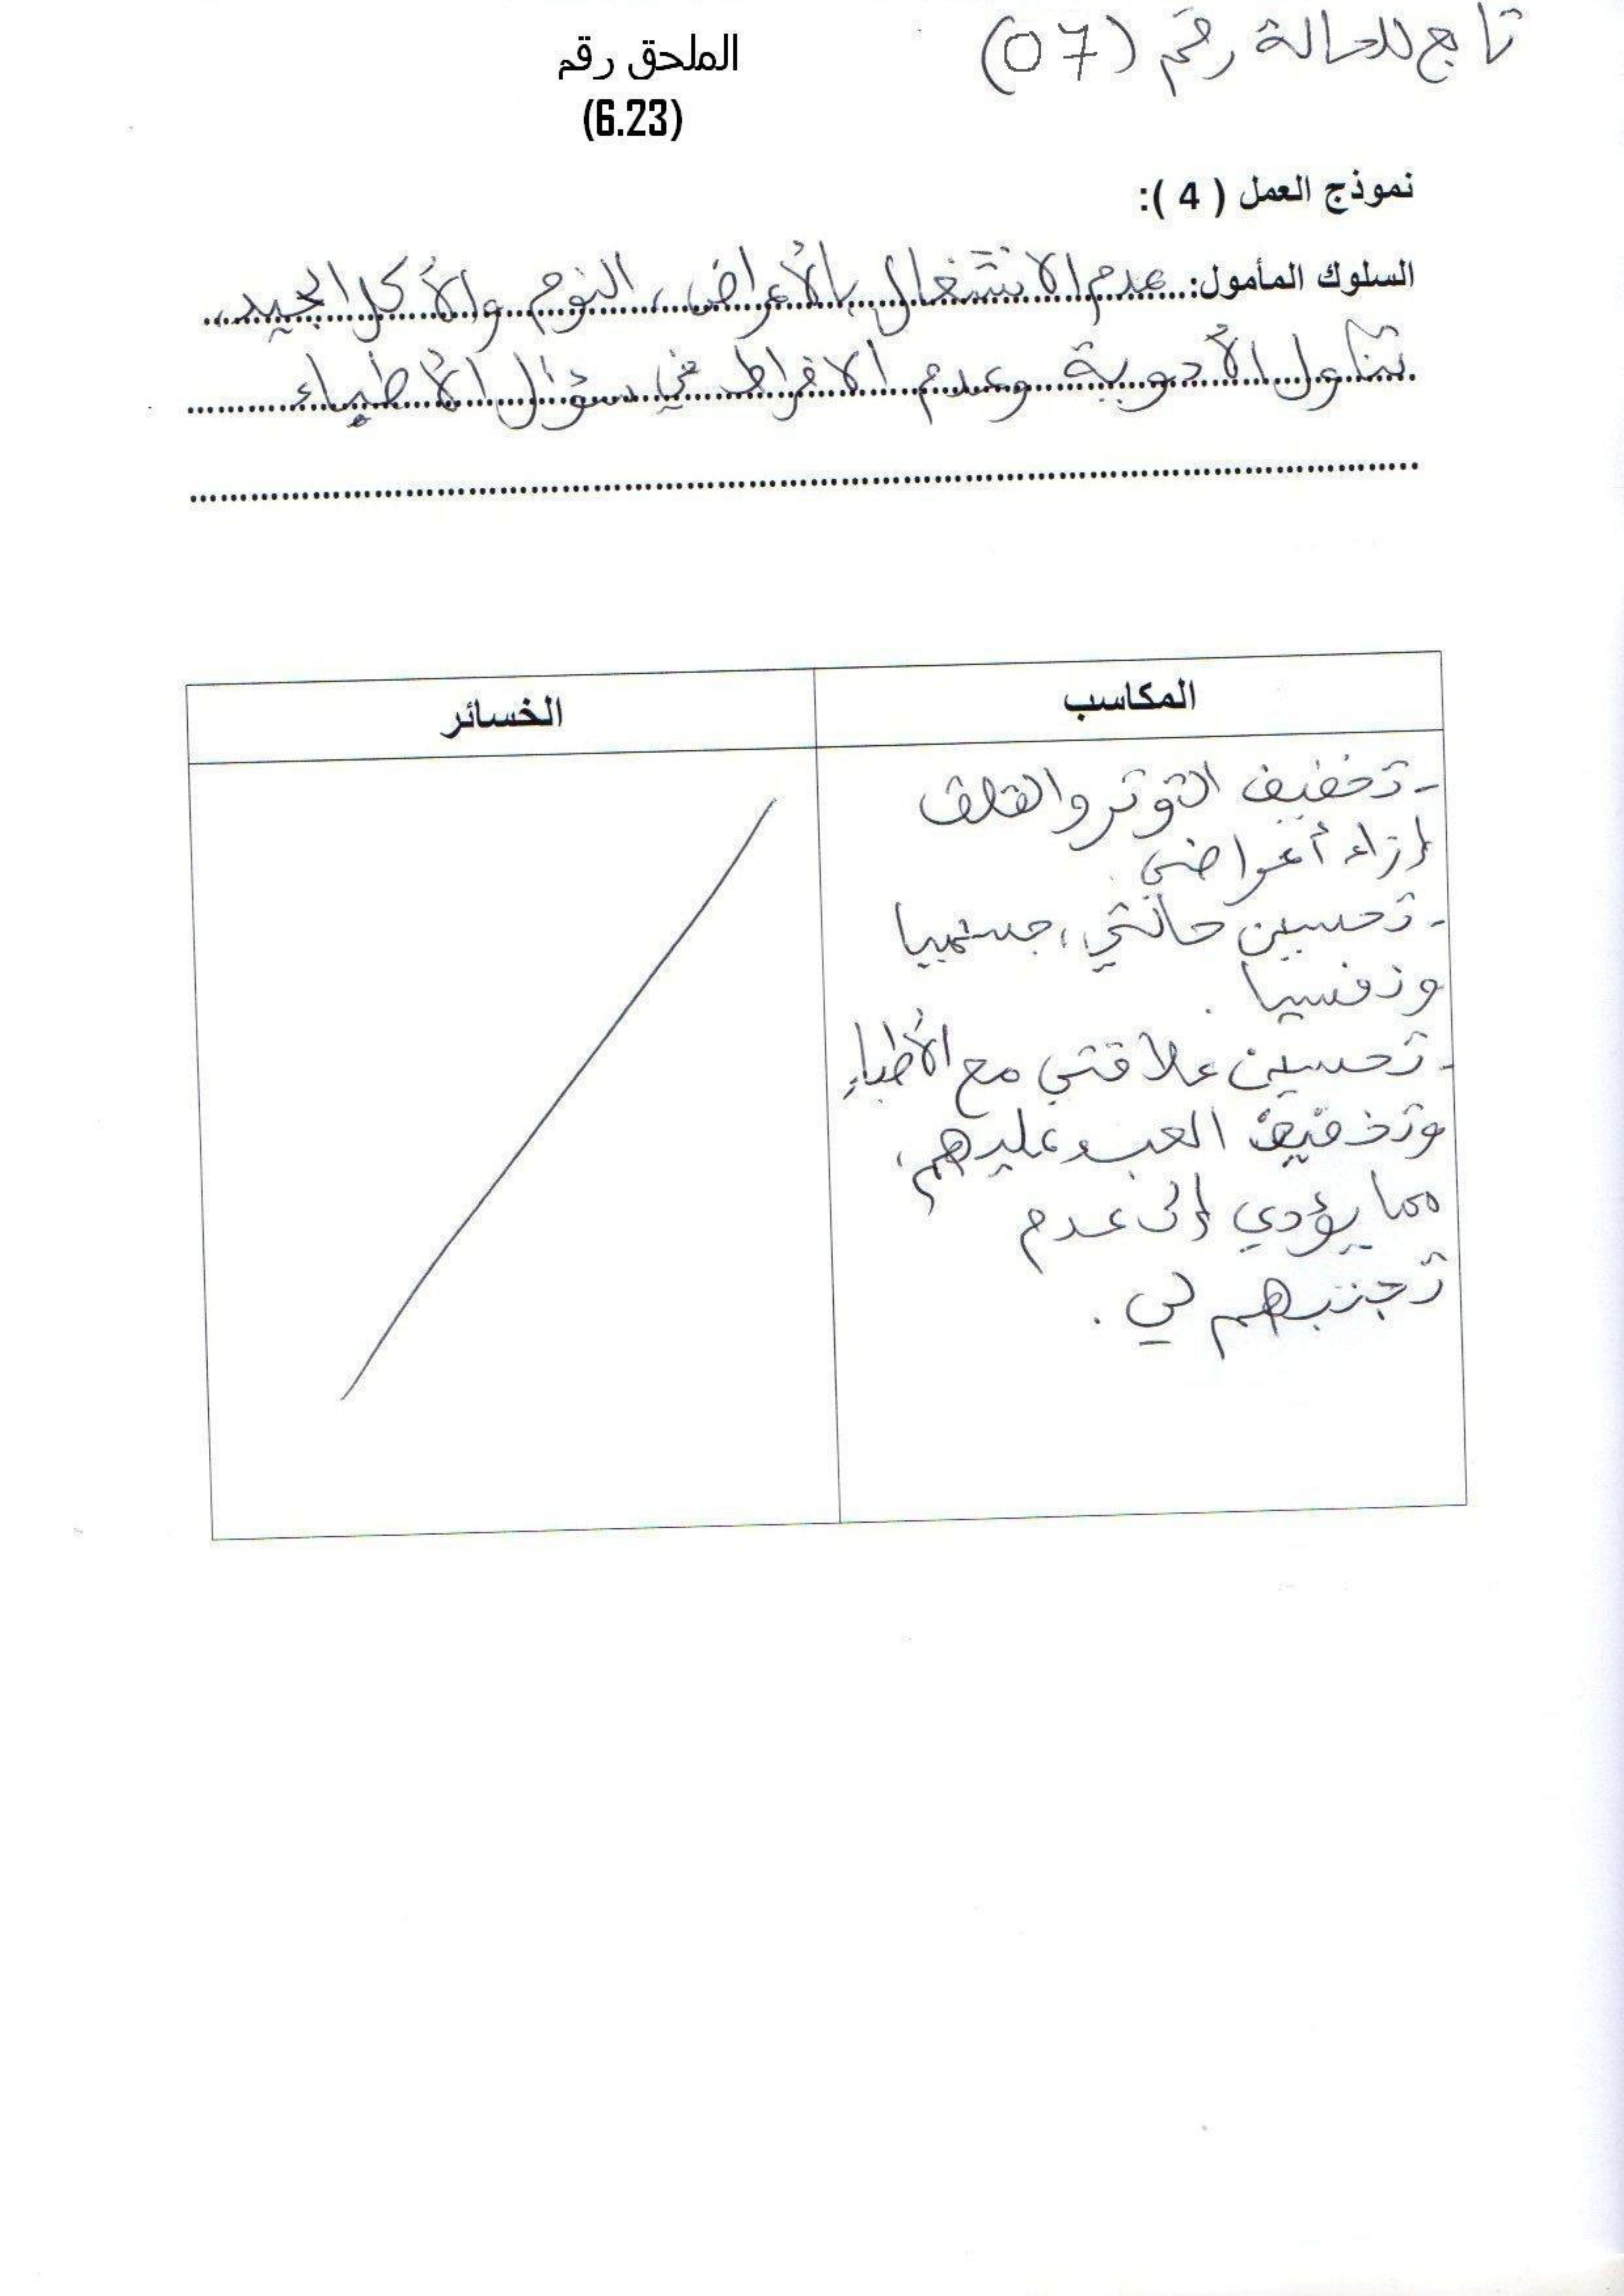 تابع للحالة رقم (07)
الملحق رقم
(6.23)
نموذج العمل ( 4 ):
السلوك المأمول: عدم الانشغال بالأعراض، النوم والأكل الجيد،
تناول الأدوية وعدم الافراط في سؤال الأطباء
المكاسب
الخسائر
- تخفيف التوتر والقلق
إزاء أعراضي.
- تحسين حالتي، جسميا
ونفسيا.
- تحسين علاقتي مع الأطباء
وتخفيف العبء عليهم،
مما يؤدي إلى عدم
تجنبهم لي.